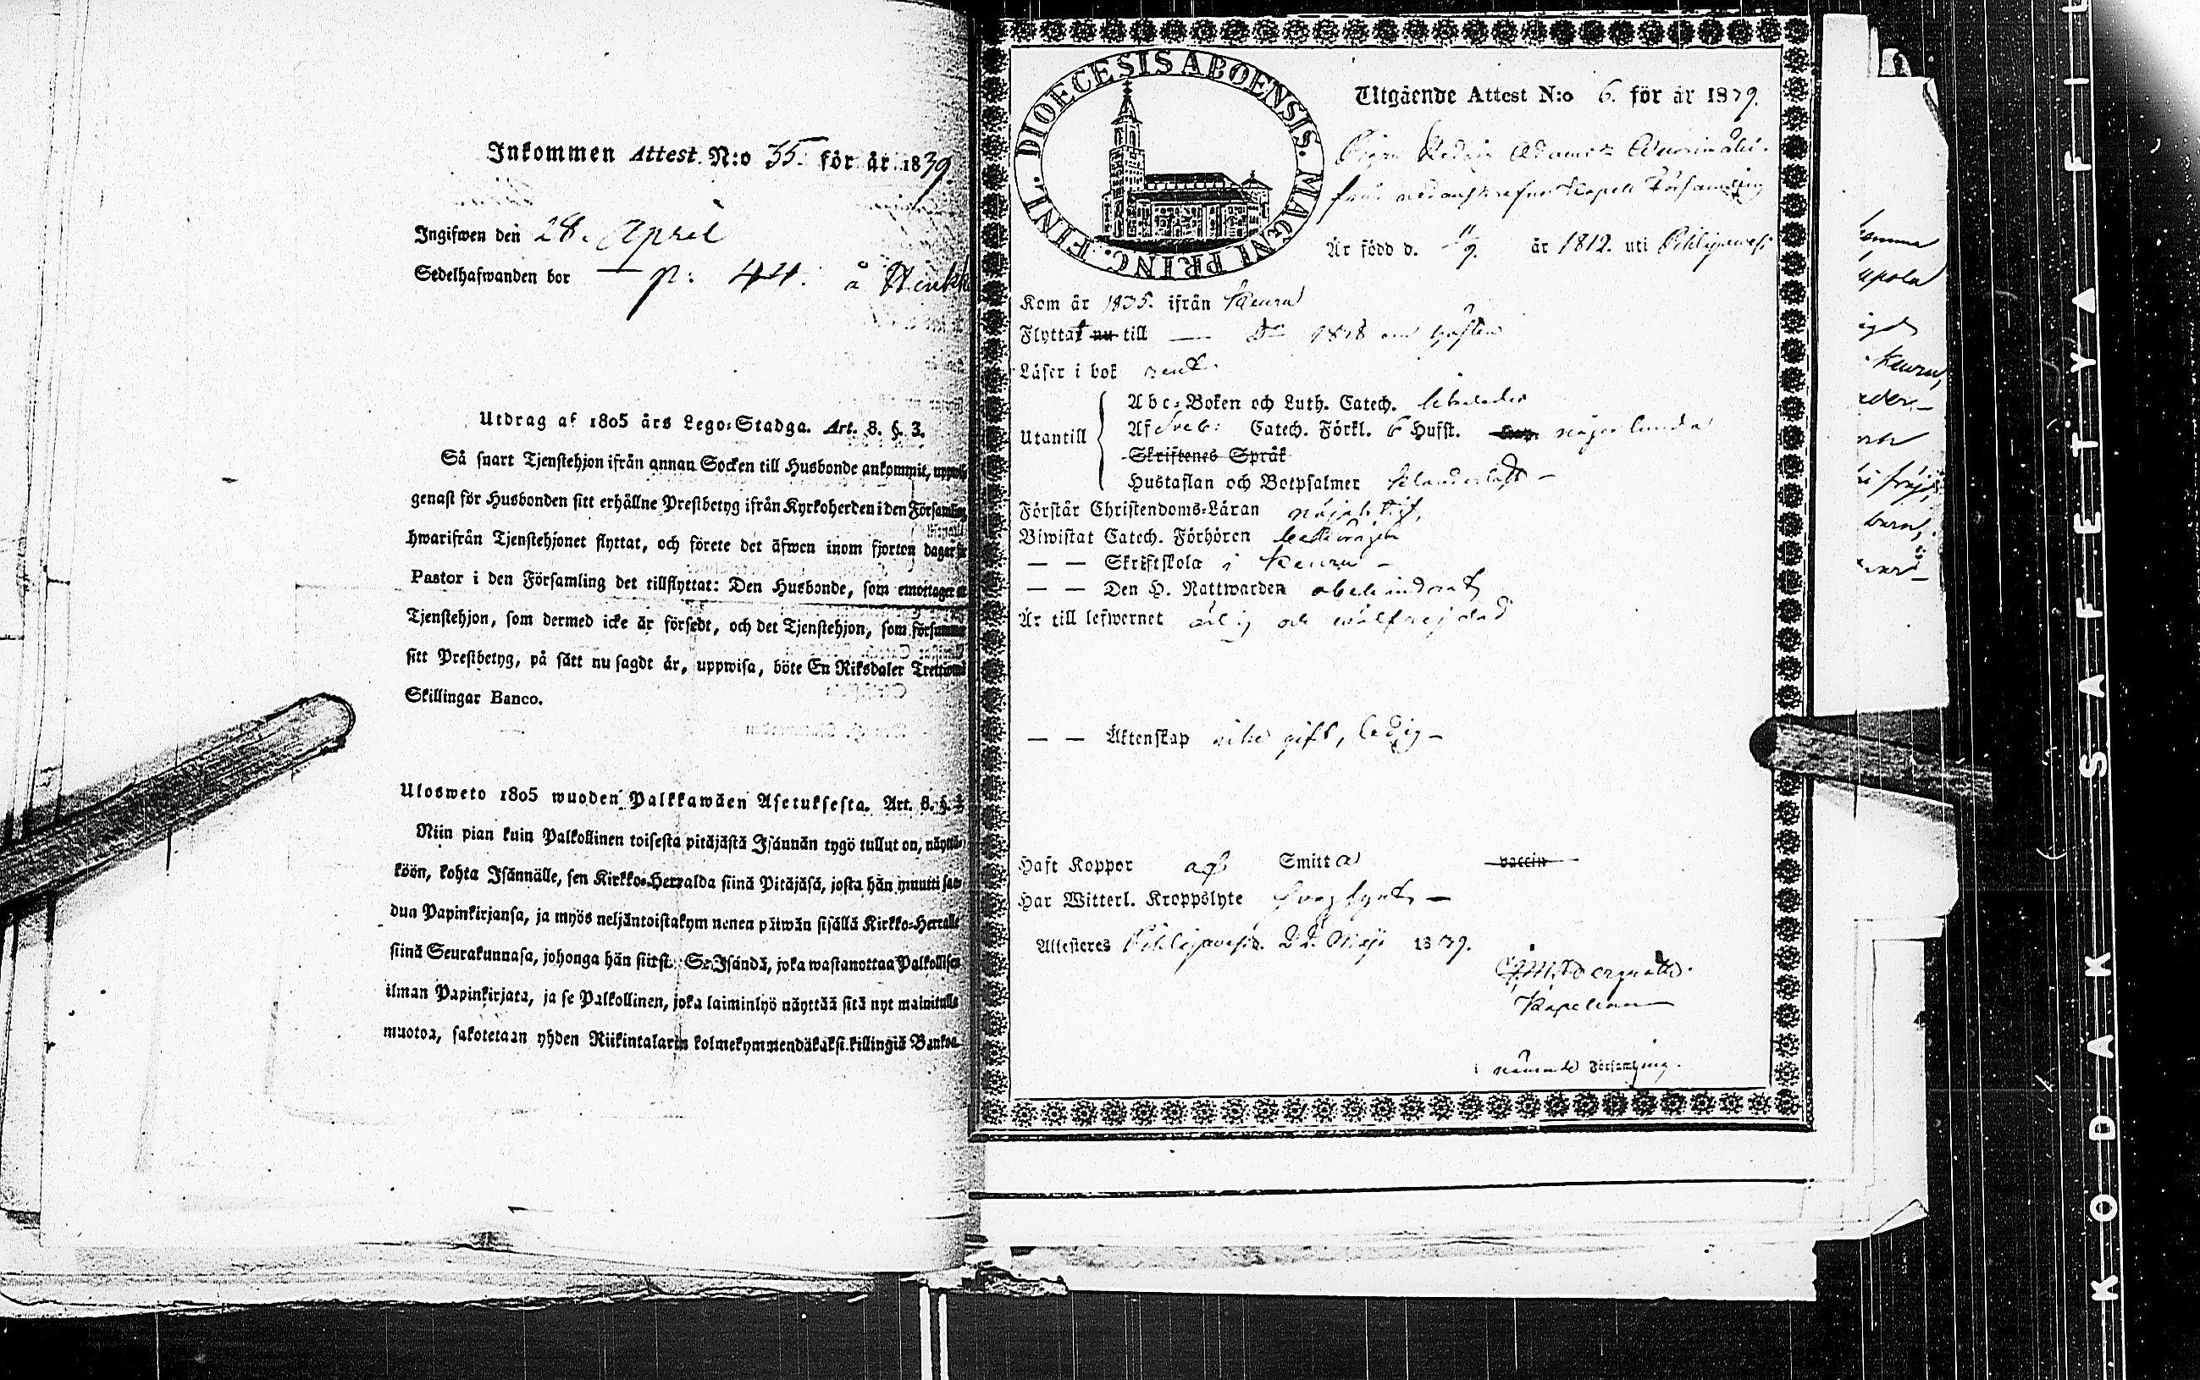 Inkommen Attest N:o 35. för år 1839.
Ingifwen den 28. April
Sedelhafwanden bor — p: 44. å
Utdrag af 1805 års Lego-Stadga. Art. 8. §. 3.
Så snart Tjenstehjon ifrån annan Socken till Husbonde ankommit,
genast för Husbonden sitt erhållne Prestbetyg ifrån Kyrkoherden i den Församling
hwarifrån Tjenstehjonet flyttat, och förete det äfwen inom fjorton dagar
Pastor i den Församling det tillflyttat: Den Husbonde, som emottager
Tjenstehjon, som dermed icke är försedt, och det Tjenstehjon, som försummar
sitt Prestbetyg, på sätt nu sagdt är, uppwisa, böte En Riksdaler
Skillingar Banco.
Ulosweto 1805 wuoden Palkkawäen Asetuksesta. Art. 8. §. 3
Niin pian kuin Palkollinen toisesta pitäjästä Isännän tygö tullut on, näyttä-
köön, kohta Isännälle, sen Kirkko-Herralda siinä Pitäjäsä, josta hän muutti saa-
dun Papinkirjansa, ja myös neljäntoistakymmenen päiwän sisällä Kirkko-Herralle
siinä Seurakunnasa, johonga hän siirst: Se Isändä, joka wastanottaa Palkollisen
ilman Papinkirjata, ja se Palkollinen, joka laiminlyö näyttää sitä nyt mainitulla
muotoa, sakotetaan yhden Riikintalarin kolmekymmendäkaksi killingiä Bankoa.
DIOECESIS ABOENSIS. MAGNI PRINC. FINL.
Utgående Attest N:o 6. för år 1839.
Pigan Hedvig Adamsdr
från nedanskrefne Kapell Församling
Är född d. 11/9. år 1812. uti Pihlajavesi
Kom år 1835. ifrån Keuru
Flyttat nu till — 1838 om hösten
Läser i bok rent.
Utantill
Abc-Boken och Luth. Catech.
Af Sveb: Catech. Förkl. 6 Hufst. någorlunda
Skriftenes Språk
Hustaflan och Botpsalmer
Förstår Christendoms-Läran nöjaktigt,
Biwistat Catech. Förhören
— — Skriftskola i Keuru —
— — Den H. Nattwarden obehindrat
Är till lefwernet ärlig och wälfrejdad
— — Äktenskap icke gift, ledig —
Haft Koppor af Smitta vaccin
Har Witterl. Kroppslyte svagsynt, —
Attesteres Pihlajavesi. d. 2. Maji 1839.
Kapellan
i nämnde Församling.
Keuru,
KODAK SAFETY A FIL